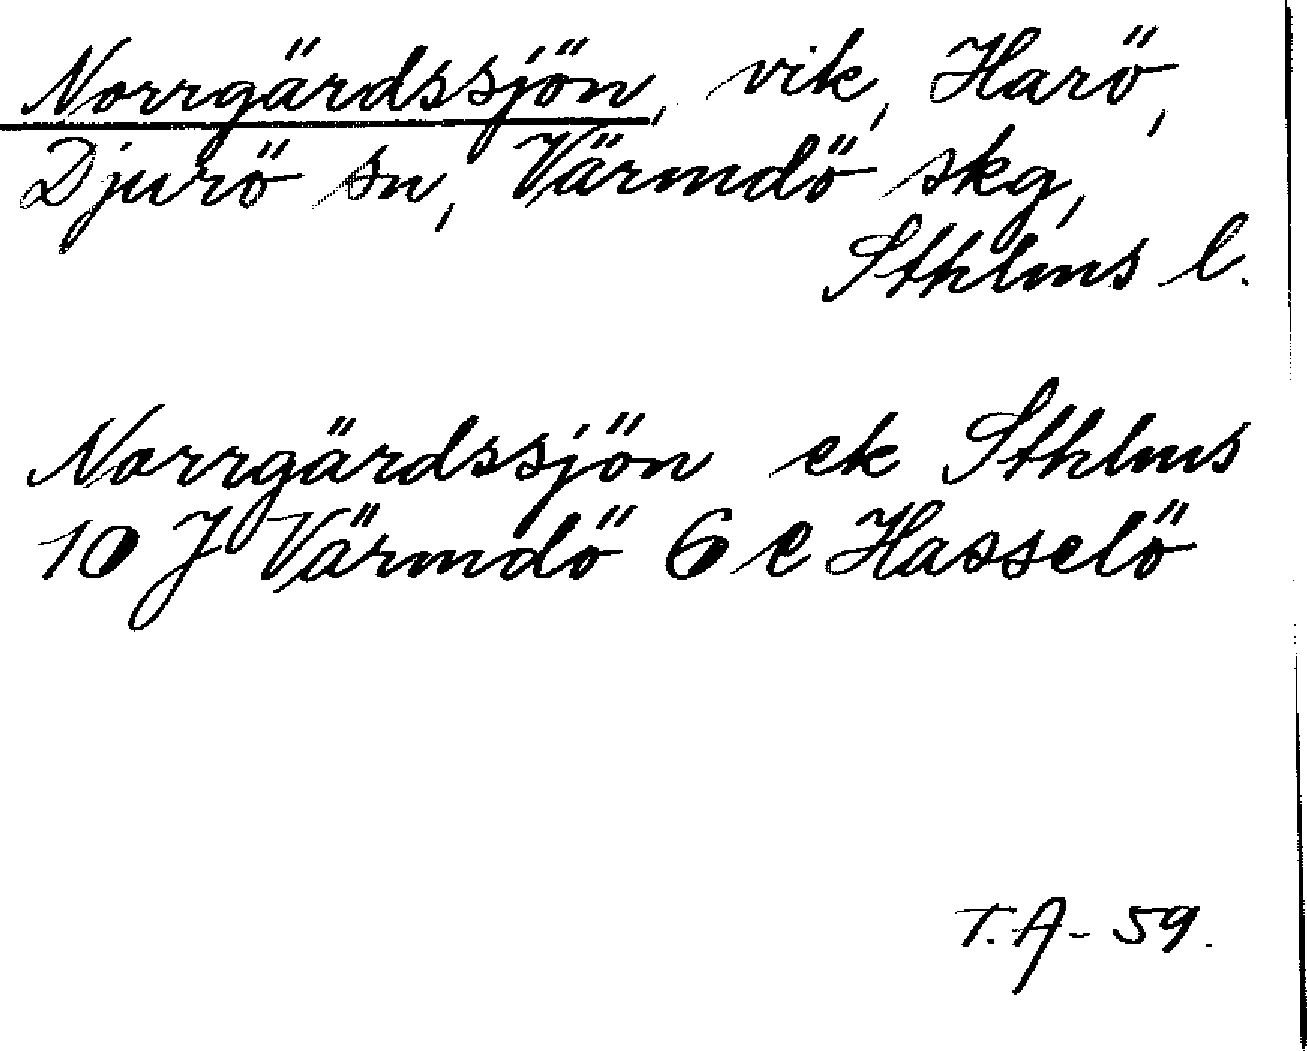 Norrgärdssjön, vik, Harö,
Djurö sn, Värmdö skg,
Sthlms l.
Norrgärdssjön ek Sthlms
10 J Värmdö 6 e Hasselö
T.A-59.